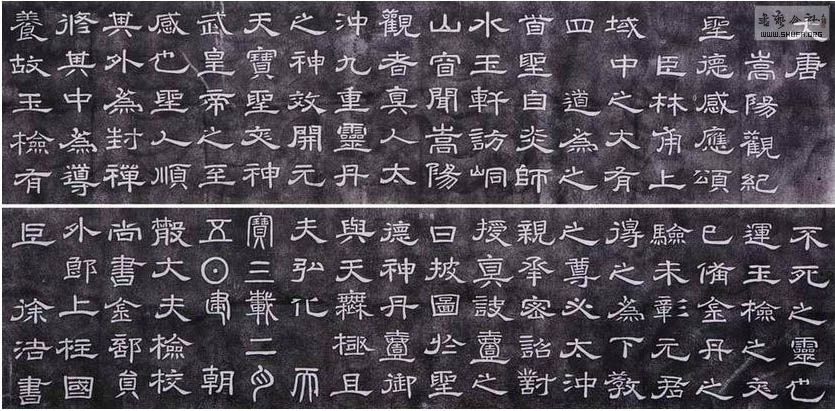 唐
嵩陽觀紀
聖德感應頌
臣林甫上
域中之大有
四 道為之
首聖自炎師
水玉軒訪峒
山窅聞嵩陽
觀者真人太
沖九重靈丹
之神效開元
天寶聖文神
武皇帝之至
感也聖人順
其外為封禪
修其中為導
養故玉檢有
不死之靈也
運玉檢之文
已備金丹之
驗未彰元君
得之為下教
之尊必太沖
親承密詔對
授真訣之
曰披圖於聖
德神丹御
與天極且
夫弘化 而
寶三載二月
五日建 朝
散大夫檢校
尚書金部員
外郎上柱國
臣 徐浩書
WWW.SHUFA.ORG